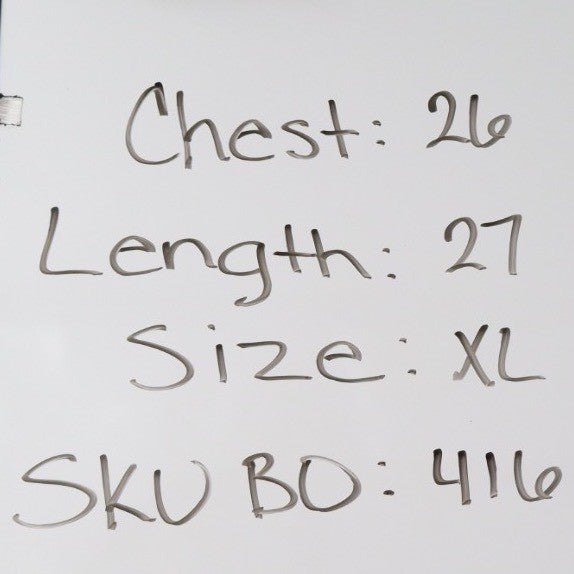 Chest: 26
Length: 27
Size: XL
SKU BO: 416